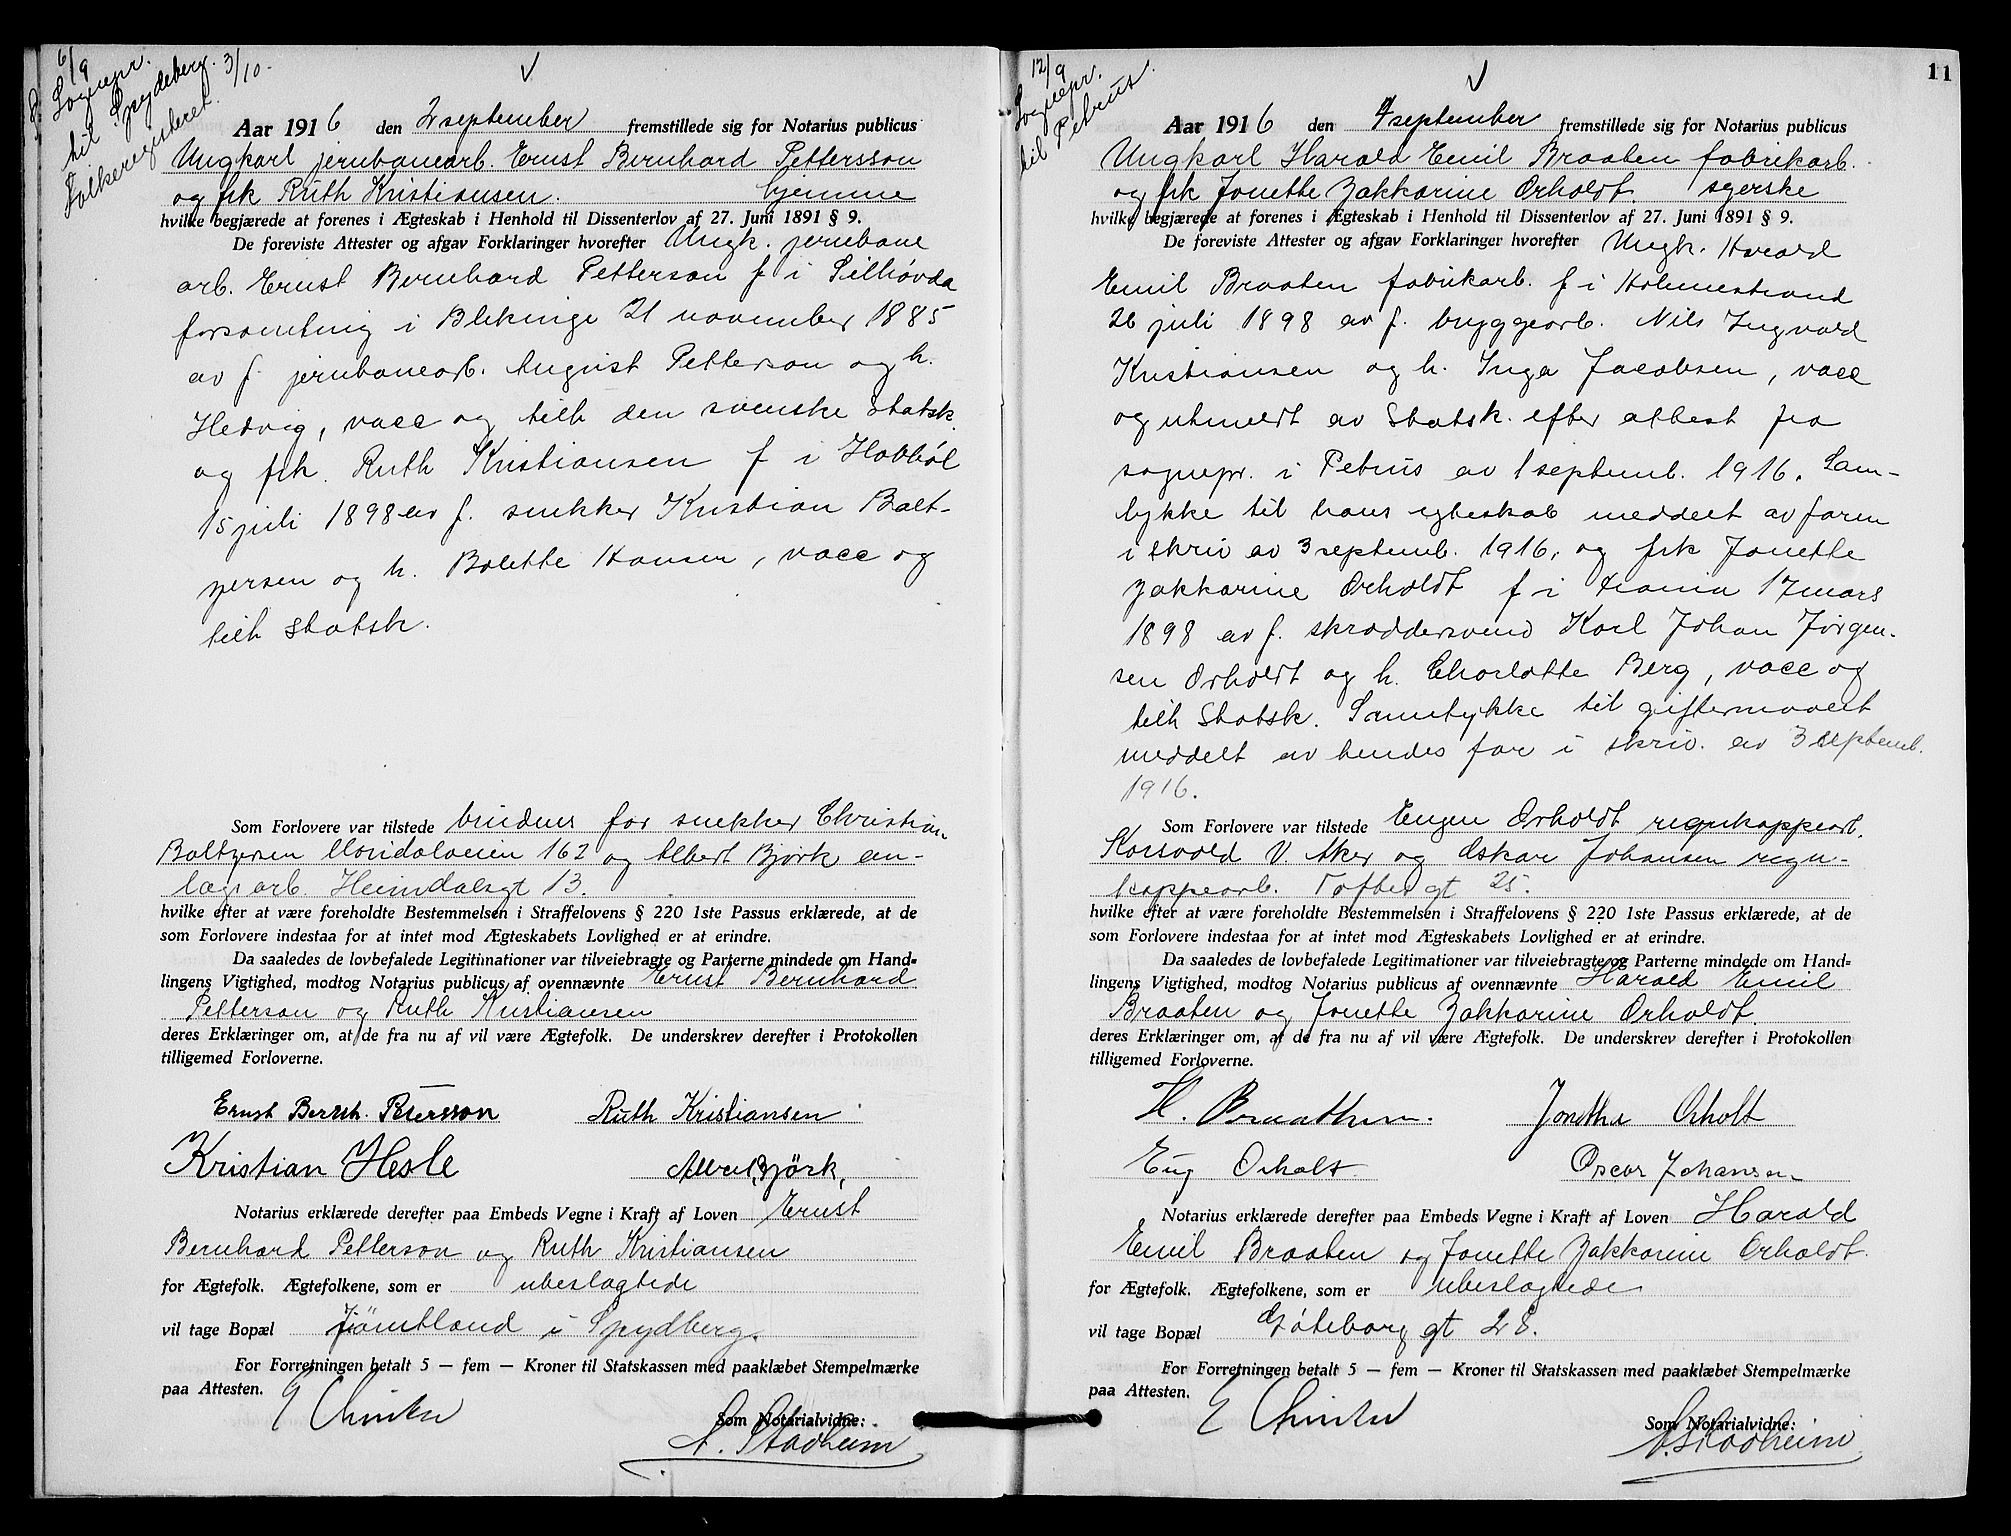 6/9
Sognepr.
til Spydeberg.
Folkeregisteret. 3/10.
Aar 1916 den 2 september fremstillede sig for Notarius publicus
Ungkarl jernbanearb. Ernst Bernhard Pettersson
og frk Ruth Kristiansen. hjemme
hvilke begjærede at forenes i Ægteskab i Henhold til Dissenterlov af 27. Juni 1891 § 9.
De foreviste Attester og afgav Forklaringer hvorefter Ungk. jernbane
arb. Ernst Bernhard Petterson f i Sillhövda
forsamling i Blekinge 21 november 1885
av f. jernbanearb. August Petterson og h.
Hedvig, vacc og tilh den svenske statsk.
og frk. Ruth Kristiansen f i Hobböl
15 juli 1898 av f. snekker Kristian Balt-
zersen og h. Bolette Hansen, vacc og
tilh Statsk.
Som Forlovere var tilstede brudens far snekker Christian
Baltzersen Maridalsveien 162 og Albert Björk an-
lægsarb. Heimdalsgt 13.
hvilke efter at være foreholdte Bestemmelsen i Straffelovens § 220 1ste Passus erklærede, at de
som Forlovere indestaa for at intet mod Ægteskabets Lovlighed er at erindre.
Da saaledes de lovbefalede Legitimationer var tilveiebragte og Parterne mindede om Hand-
lingens Vigtighed, modtog Notarius publicus af ovennævnte Ernst Bernhard
Petterson og Ruth Kristiansen
deres Erklæringer om, at de fra nu af vil være Ægtefolk. De underskrev derefter i Protokollen
tilligemed Forloverne.
Ernst Bernh. Petersson Ruth Kristiansen
Kristian Hesle Albert Björk,
Notarius erklærede derefter paa Embeds Vegne i Kraft af Loven Ernst
Bernhard Petterson og Ruth Kristiansen
for Ægtefolk. Ægtefolkene, som er ubeslagtede
vil tage Bopæl Jämtland i Spydberg.
For Forretningen betalt 5 — fem — Kroner til Statskassen med paaklæbet Stempelmærke
paa Attesten.
Som Notarialvidne:
12/9
Sognepr.
til Petrus.
11
Aar 1916 den 4 september fremstillede sig for Notarius publicus
Ungkarl Harald Emil Braaten fabrikarb.
og frk Jonette Zakkarine Orholdt. syerske
hvilke begjærede at forenes i Ægteskab i Henhold til Dissenterlov af 27. Juni 1891 § 9.
De foreviste Attester og afgav Forklaringer hvorefter Ungk. Harald
Emil Braaten fabrikarb. f i Holmestrand
26 juli 1898 av f. bryggearb. Nils Ingvald
Kristiansen og h. Inga Jacobsen, vacc
og utmeldt av Statsk. efter attest fra
sognepr. i Petrus av 1 septemb. 1916. Sam-
tykke til hans egteskab meddelt av faren
i skriv av 3 septemb. 1916, og frk Jonette
Zakkarine Orholdt f i Krania 17 mars
1898 av f. skræddersvend Karl Johan Jörgen-
sen Orholdt og h. Charlotte Berg, vacc og
tilh Statsk. Samtykke til giftermaalet
meddelt av hendes far i skriv. av 3 septemb.
1916.
Som Forlovere var tilstede Eugen Orholdt regnkappearb.
Korsvold V. Aker og Oskar Johansen regn-
kappearb. Toftesgt 25.
hvilke efter at være foreholdte Bestemmelsen i Straffelovens § 220 1ste Passus erklærede, at de
som Forlovere indestaa for at intet mod Ægteskabets Lovlighed er at erindre.
Da saaledes de lovbefalede Legitimationer var tilveiebragte og Parterne mindede om Hand-
lingens Vigtighed, modtog Notarius publicus af ovennævnte Harald Emil
Braaten og Jonette Zakkarine Orholdt
deres Erklæringer om, at de fra nu af vil være Ægtefolk. De underskrev derefter i Protokollen
tilligemed Forloverne.
H. Braathen. Jonetha Orholt
Eug Orholt. Oscar Johansen
Notarius erklærede derefter paa Embeds Vegne i Kraft af Loven Harald
Emil Braaten og Jonette Zakkarine Orholdt.
for Ægtefolk. Ægtefolkene, som er ubeslagtede
vil tage Bopæl Göteborg gt 28.
For Forretningen betalt 5 — fem — Kroner til Statskassen med paaklæbet Stempelmærke
paa Attesten.
Som Notarialvidne: